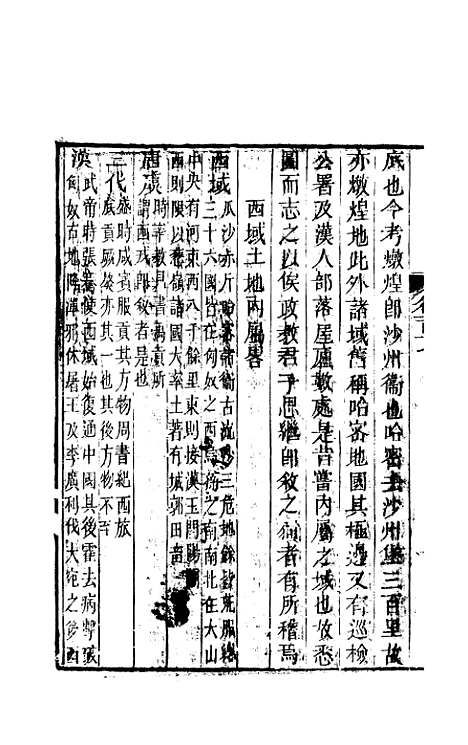 底也今考燉煌郎沙州衛也哈密去沙州堡三百里故
亦燉煌地此外諸域舊稱哈密地國其極邊又有巡檢
公署及漢人部落屋廬數處是昔嘗內屬之域也故悉
圖而志之以俟政教君子思繼郎敘之者有所稽焉
西域土地內屬畧
西域
瓜沙赤斤 古 三危地餘皆荒服總
三十六國皆在匈奴之西 之南北在大山
中央有河東西八千餘里東則接漢玉門陽
西則限以葱嶺諸國大率土著有城郭田畜
唐虞
時
謂西戎郎敘者也
三代
盛時咸賓服貢其方物周書紀西旅
底貢厥獒亦其一也其後方物不至
漢
武帝時張騫使西域始復通中國其後霍去病擊破
匈奴右地降渾邪休屠王及李廣利伐大宛之後西